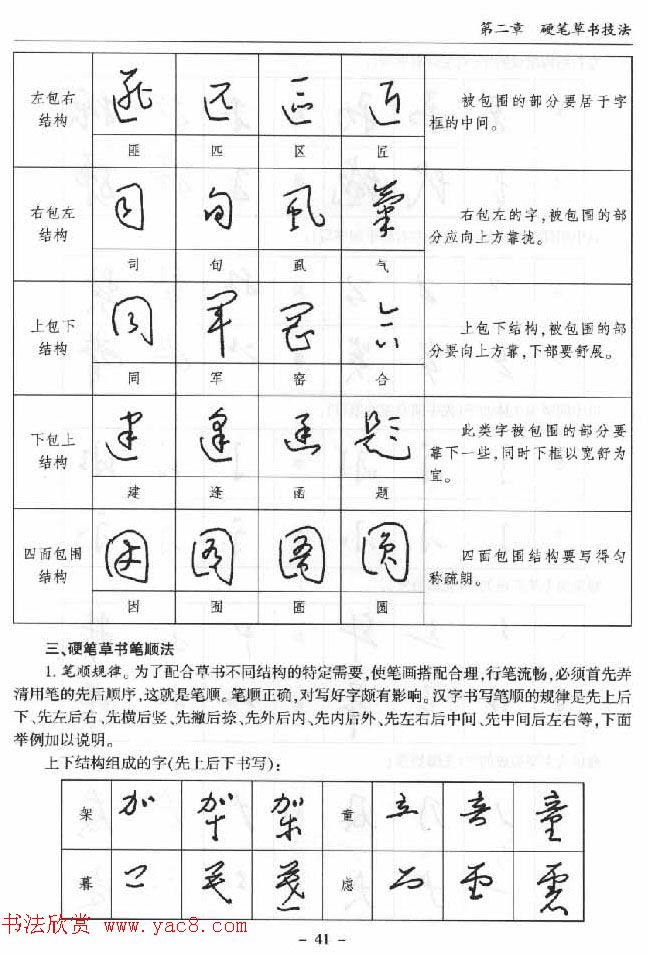 第二章 硬笔草书技法
左包右
结构
匪 匹 区 匠
被包围的部分要居于字
框的中间。
右包左
结构
司 旬 虱 气
右包左的字,被包围的部
分应向上方靠拢。
上包下
结构
同 军 窑 合
上包下结构,被包围的部
分要向上方靠,下部要舒展。
下包上
结构
建 逢 函 题
此类字被包围的部分要
靠下一些,同时下框以宽舒为
宜。
四面包围
结构
因 囿 圄 圆
四面包围结构要写得匀
称疏朗。
三、硬笔草书笔顺法
1. 笔顺规律。为了配合草书不同结构的特定需要,使笔画搭配合理,行笔流畅,必须首先弄
清用笔的先后顺序,这就是笔顺。笔顺正确,对写好字颇有影响。汉字书写笔顺的规律是先上后
下、先左后右、先横后竖、先撇后捺、先外后内、先内后外、先左右后中间、先中间后左右等,下面
举例加以说明。
上下结构组成的字(先上后下书写):
架 童
暮 虑
书法欣赏 www.yac8.com
- 41 -